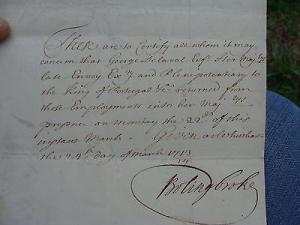 These are to Certify all whom it may
concern that George Delaval Esqr. Her Maj:ts
late Envoy Exry and Plenipotentiary to
the King of Portugal &c. returned from
those Employments into her Maj:ts
presence on Monday the 22d of this
instant March. Given at Whitehall
the 24th day of March 1713
Bolingbroke